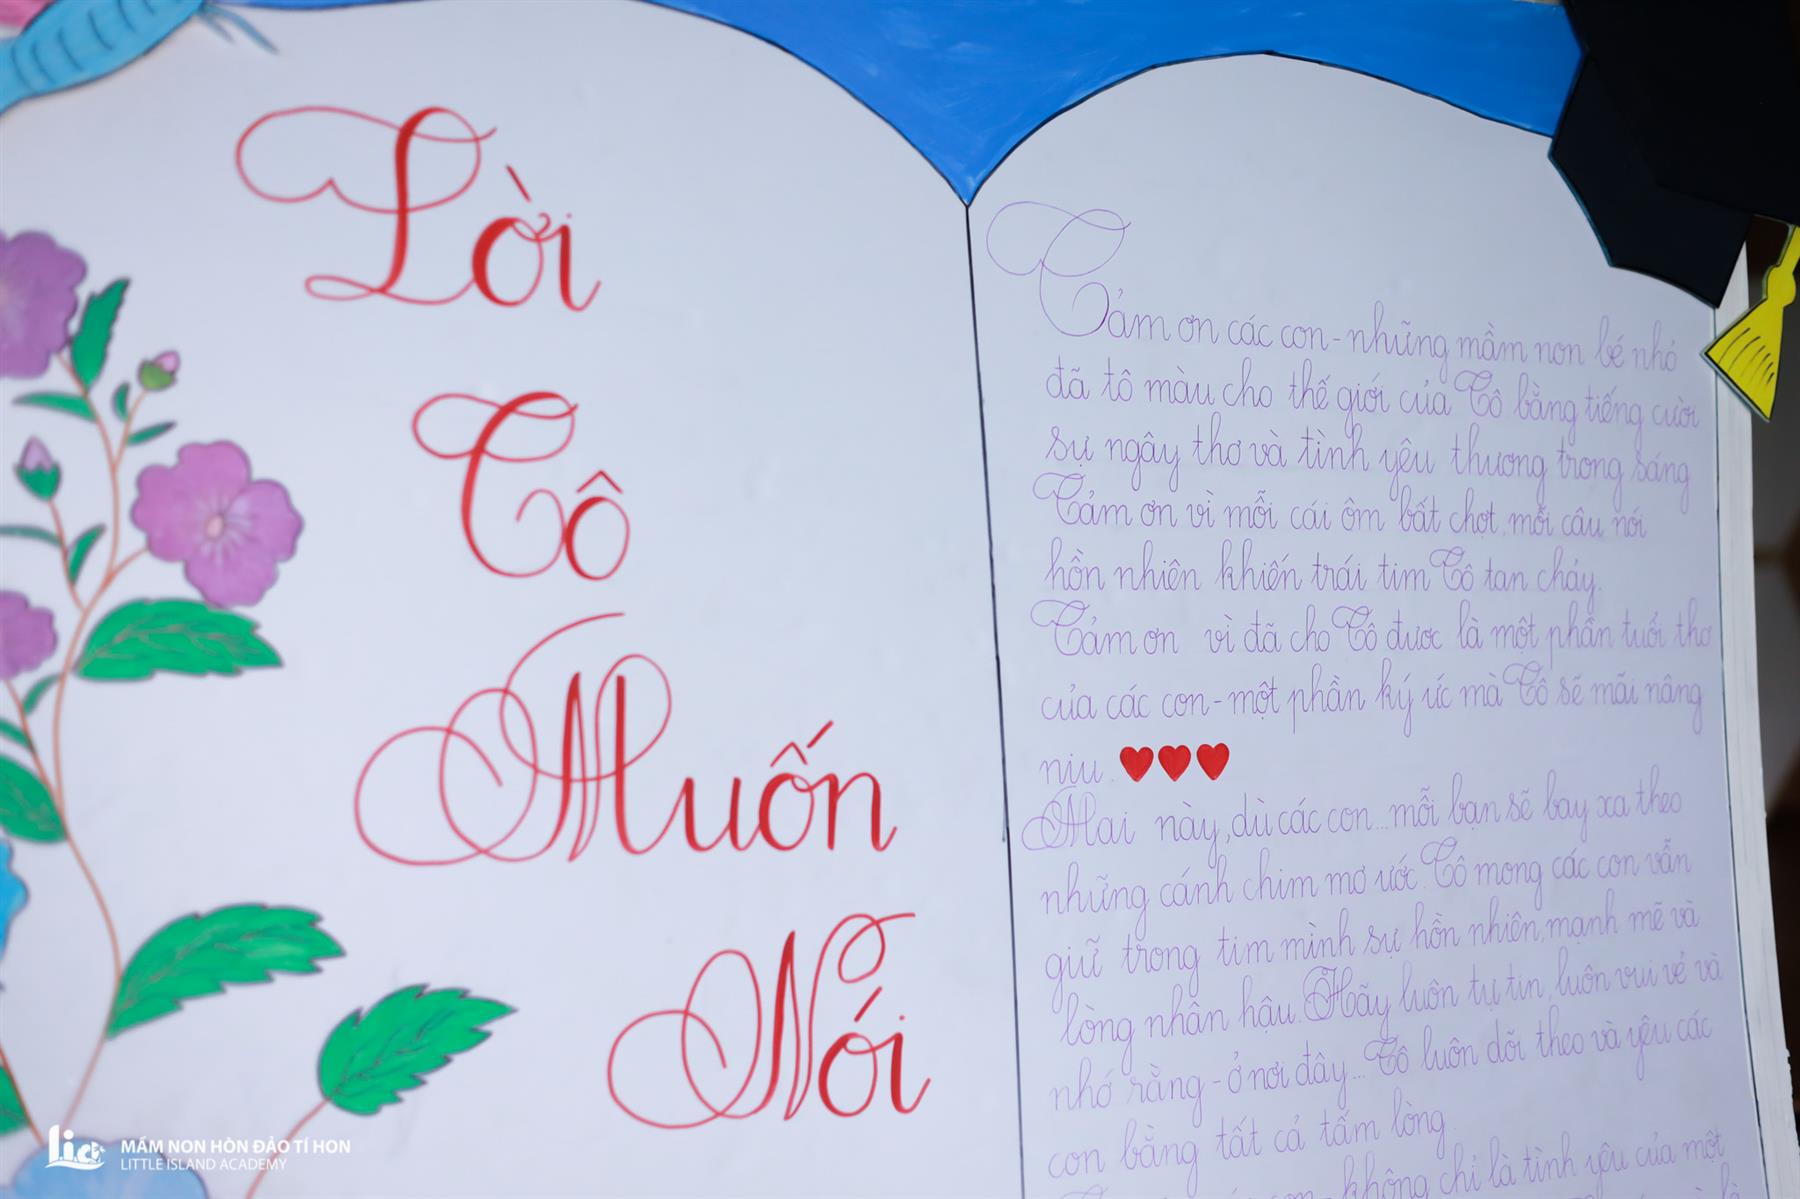 Lời
Cô
Muốn
Nói
Cảm ơn các con - những mầm non bé nhỏ
đã tô màu cho thế giới của Cô bằng tiếng cười
sự ngây thơ và tình yêu thương trong sáng
Cảm ơn vì mỗi cái ôm bất chợt, mỗi câu nói
hồn nhiên khiến trái tim Cô tan chảy.
Cảm ơn vì đã cho Cô được là một phần tuổi thơ
của các con - một phần ký ức mà Cô sẽ mãi nâng
niu. ❤❤❤
Mai này, dù các con... mỗi bạn sẽ bay xa theo
những cánh chim mơ ước. Cô mong các con vẫn
giữ trong tim mình sự hồn nhiên, mạnh mẽ và
lòng nhân hậu. Hãy luôn tự tin, luôn vui vẻ và
nhớ rằng - ở nơi đây... Cô luôn dõi theo và yêu các
con bằng tất cả tấm lòng.
không chỉ là tình yêu của một
l.i.a MẦM NON HÒN ĐẢO TÍ HON
LITTLE ISLAND ACADEMY